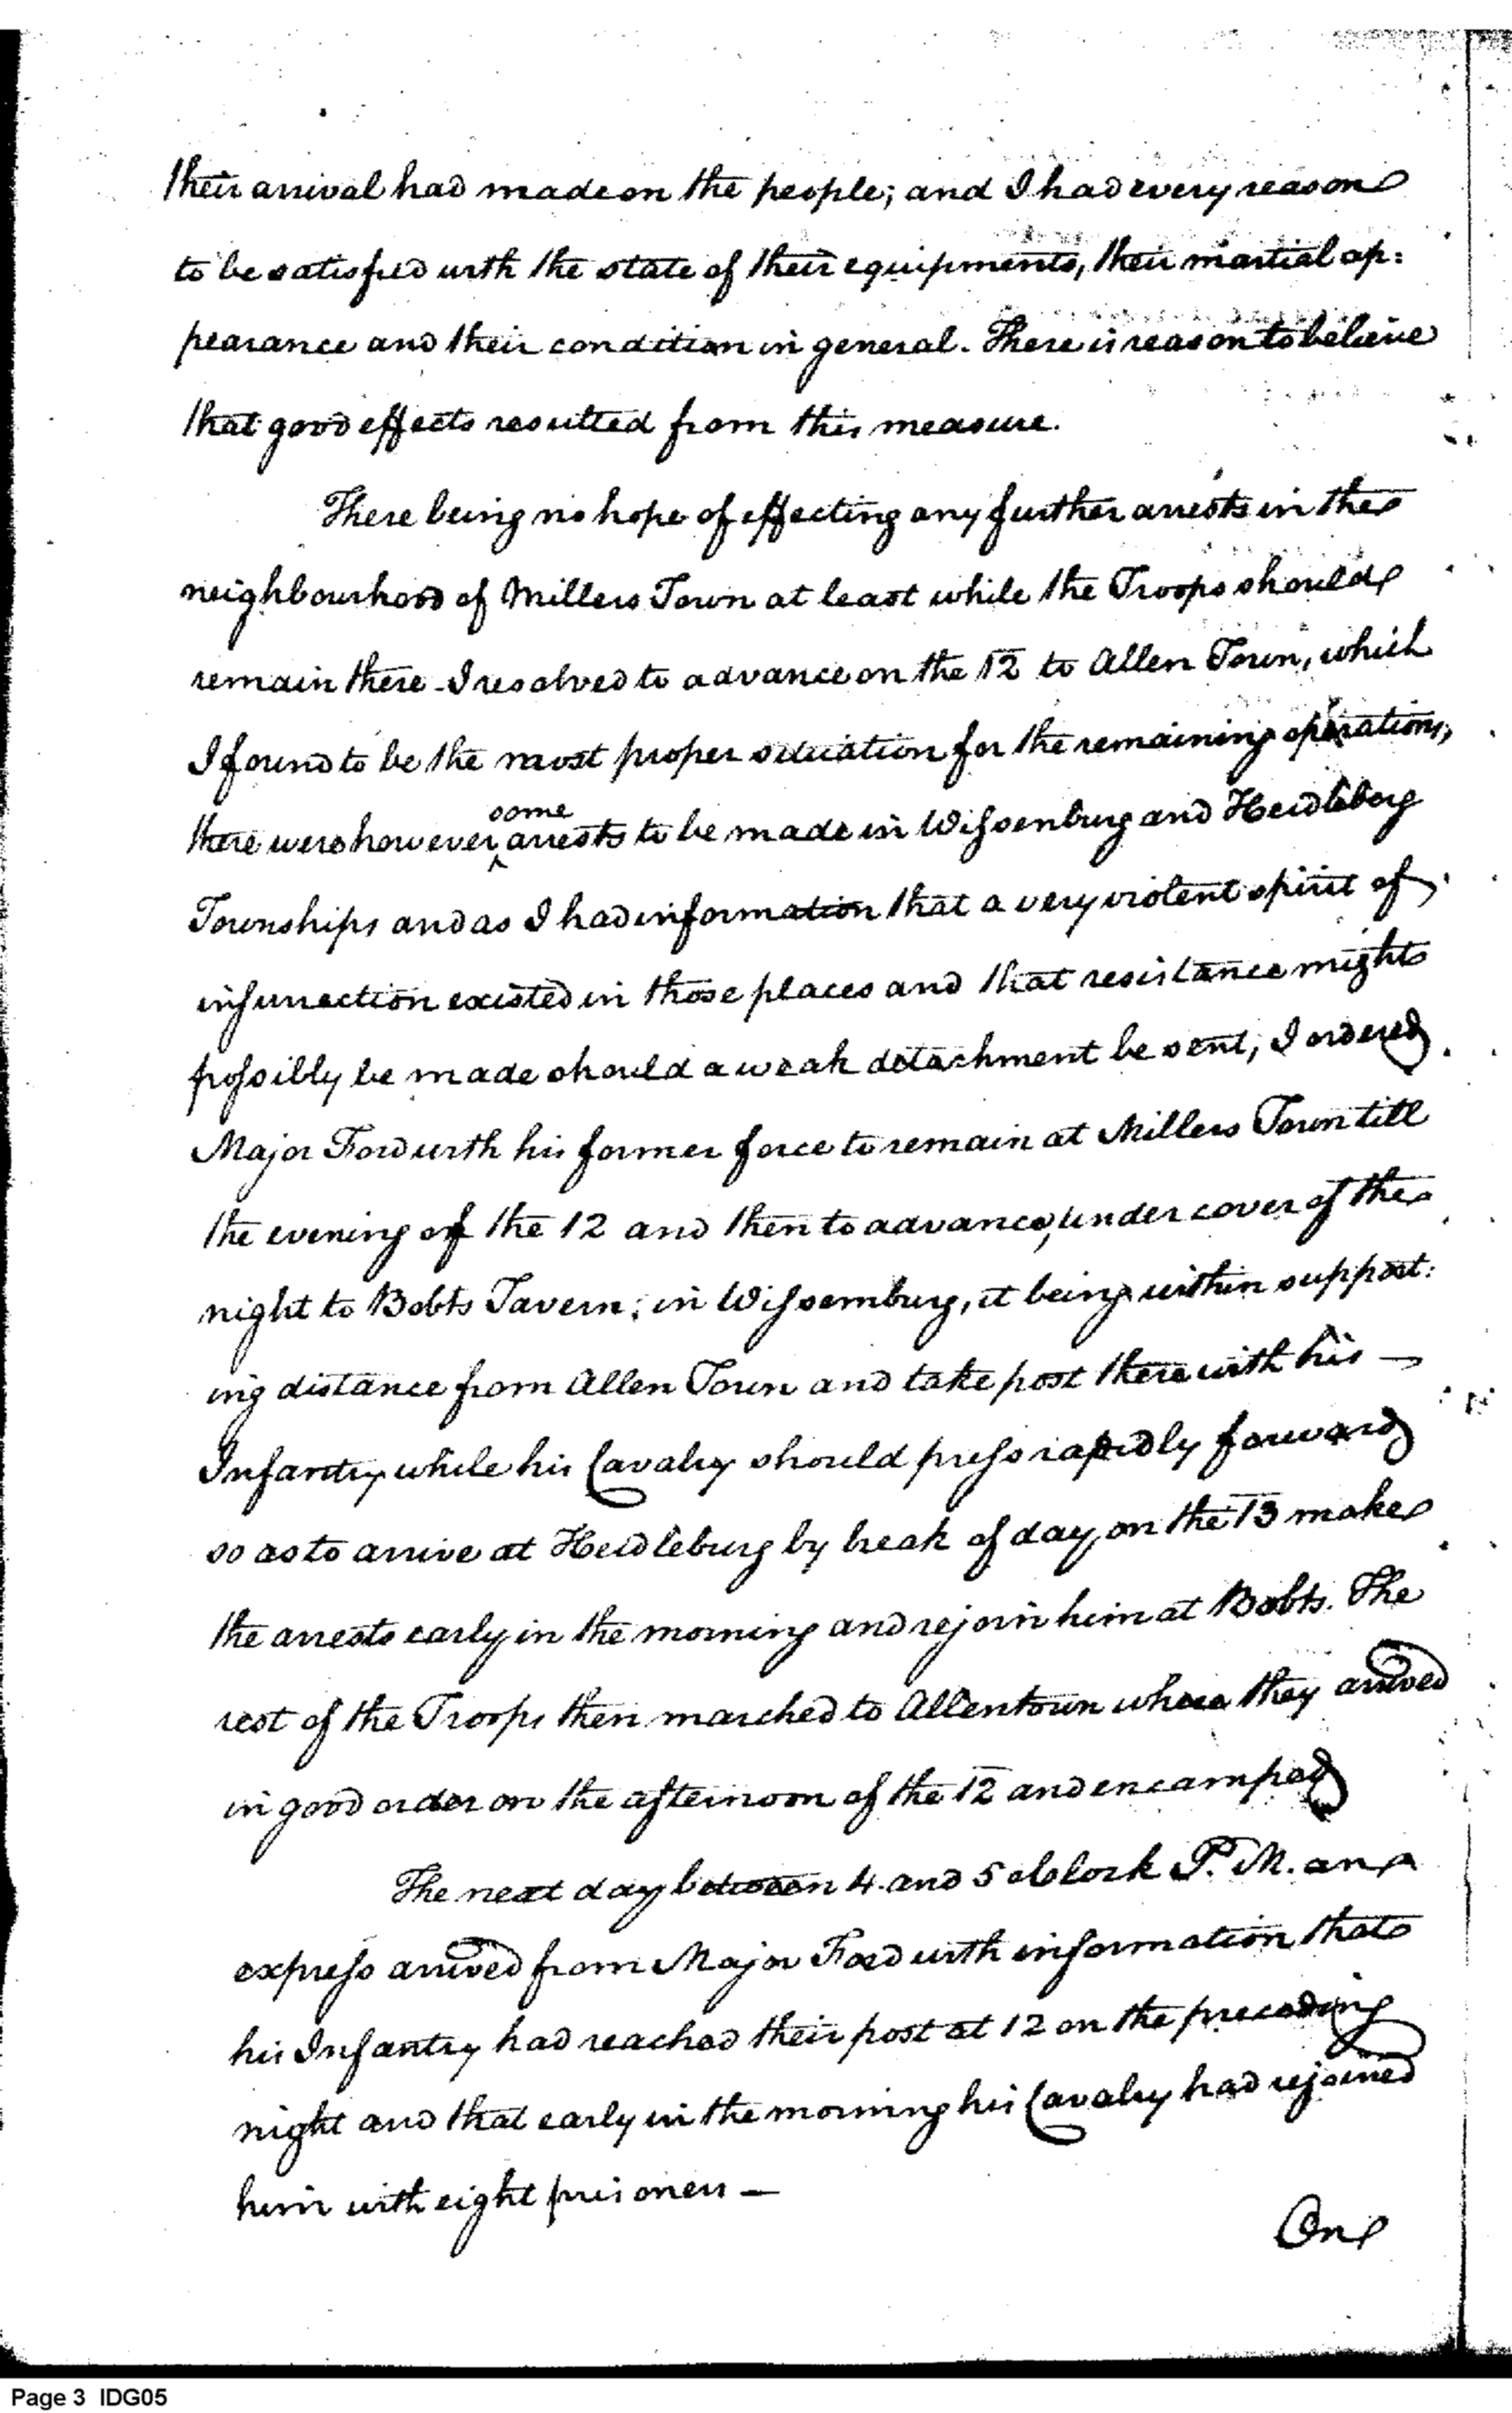 their arrival had made on the people; and I had every reason
to be satisfied with the state of their equipments, their martial ap:
pearance and their condition in general. There is reason to believe
that good effects resulted from this measure.
There being no hope of effecting any further arrests in the
neighbourhood of Millers Town at least while the Troops should
remain there - I resolved to advance on the 12 to Allen Town, which
I found to be the most proper situation for the remaining operations,
there were however some arrests to be made in Wissenburg and Heidleberg
Townships and as I had information that a very violent spirit of
insurrection existed in those places and that resistance might
possibly be made should a weak detachment be sent, I ordered
Major Ford with his former force to remain at Millers Town till
the evening of the 12 and then to advance, under cover of the
night to Bobts Tavern; in Wissemburg, it being within support:
ing distance from Allen Town and take post there with his —
Infantry while his Cavalry should press rapidly forward
so as to arrive at Heidleburg by break of day, on the 13 make
the arrests early in the morning and rejoin him at Bobts. The
rest of the Troops then marched to Allentown where they arrived
in good order on the afternoon of the 12 and encamped
The next day between 4 and 5 oClock P. M. an
express arrived from Major Ford with information that
his Infantry had reached their post at 12 on the preceding
night and that early in the morning his Cavalry had rejoined
him with eight prisoners —
One
Page 3 IDG05